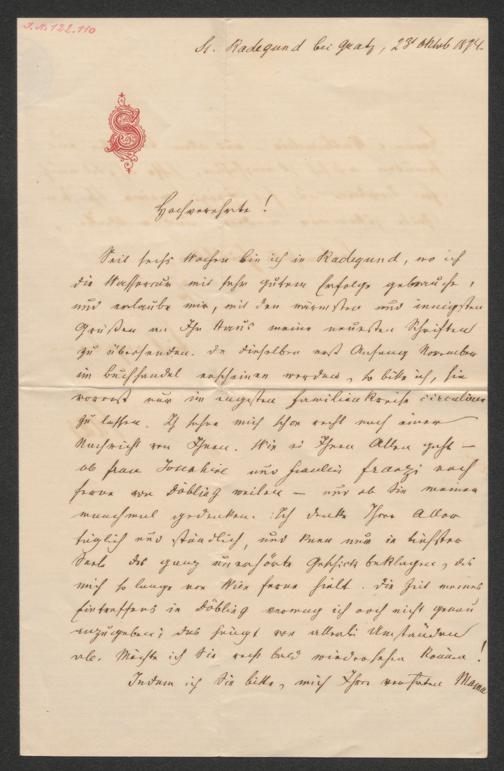 J.N. 122.110
St. Radegund bei Gratz, 23t Oktob 1874.
S
Hochverehrte!
Seit sechs Wochen bin ich in Radegund, wo ich
die Wassercur mit sehr gutem Erfolge gebrauche,
und erlaube mir, mit den wärmsten und innigsten
Grüßen an Ihr Haus meine neuesten Schriften
zu übersenden. Da dieselben erst Anfang November
im Buchhandel erscheinen werden, so bitte ich, sie
vorerst nur im engsten Familienkreise circuliren
zu lassen. Ich sehne mich schon recht nach einer
Nachricht von Ihnen. Wie es Ihnen Allen geht —
ob Frau Josephine und Fräulein Franzi noch
ferne von Döbling weilen — und ob Sie meiner
manchmal gedenken. Ich denke Ihrer Aller
täglich und stündlich, und kann nur in tiefster
Seele das ganz unerhörte Geschick beklagen, das
mich so lange von Wien ferne hielt. Die Zeit meines
Eintreffens in Döbling vermag ich noch nicht genau
anzugeben; das hängt von allerlei Umständen
ab. Möchte ich Sie recht bald wiedersehen können!
Indem ich Sie bitte, mich Ihrer verehrten Mama